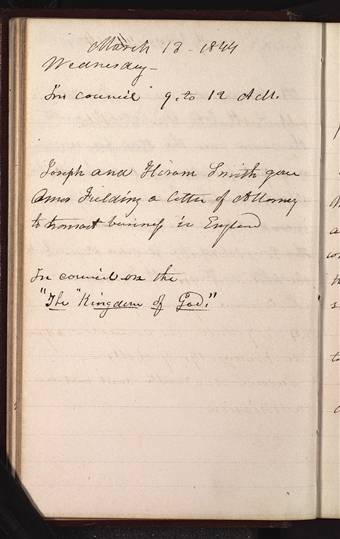 March 13 - 1844
Wednesday -
In council 9. to 12 A M.
Joseph and Hiram Smith gave
Amos Fielding a letter of Attorney
to transact business in England
In council on the
"The "Kingdom of God."